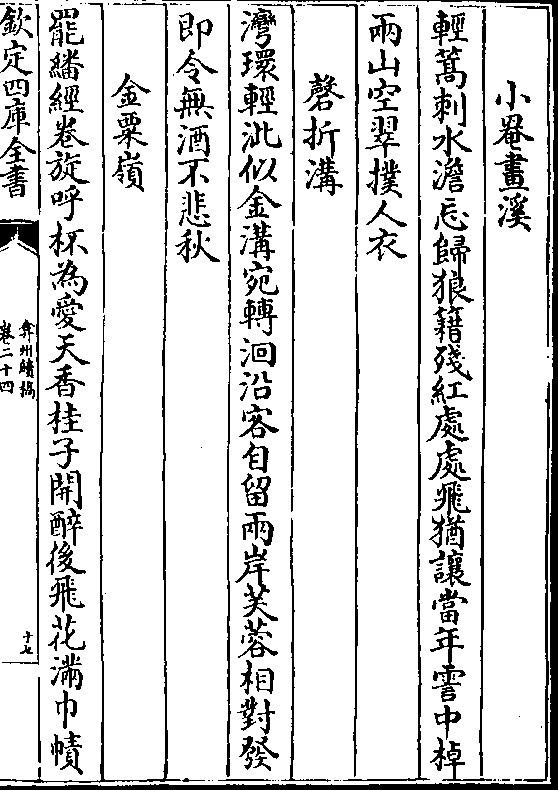 小罨畫溪
輕篙刺水澹忘歸狼籍殘紅處處飛猶讓當年霅中棹
兩山空翠撲人衣
磬折溝
灣環輕泚似金溝宛轉洄沿客自留兩岸芙蓉相對發
即令無酒不悲秋
金粟嶺
罷繙經卷旋呼杯為愛天香桂子開醉後飛花滿巾幘
欽定四庫全書
弇州續稿
卷二十四
十七